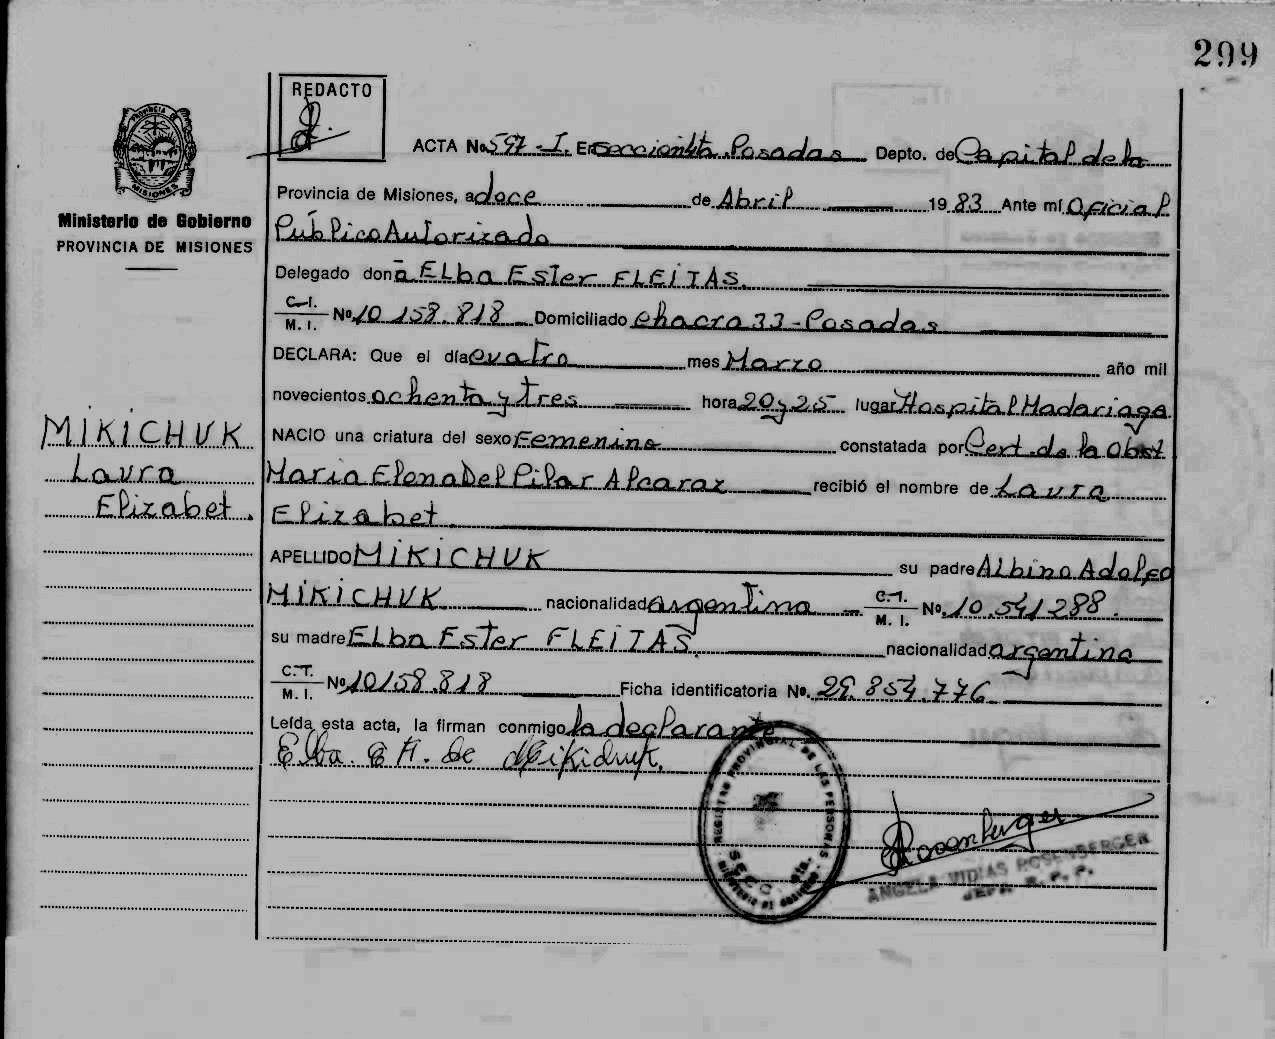 299
REDACTO
ACTA No 597-I. En Seccion 1ta. Posadas Depto. de Capital de la
Provincia de Misiones, a doce de Abril 1983 Ante mí Oficial
Público Autorizado
Ministerio de Gobierno
PROVINCIA DE MISIONES
Delegado doña ELba Ester FLEITAS.
C.I.
M. I. No 10.158.818 Domiciliado chacra 33-Posadas
DECLARA: Que el día cuatro mes Marzo año mil
novecientos ochenta y tres hora 20 y 25 lugar Hospital Madariaga
NACIO una criatura del sexo Femenino constatada por Cert. de la Obst
Maria Elena Del Pilar Alcaraz recibió el nombre de Laura
Elizabet.
MIKICHUK
Laura
Elizabet.
APELLIDO MIKICHUK su padre Albino Adolfo
MIKICHUK nacionalidad argentina C.I.
M. I. No. 10.541.288.
su madre ELba Ester FLEITAS. nacionalidad argentina
C.I.
M. I. No 10.158.818 Ficha identificatoria No. 29.854.776
Leída esta acta, la firman conmigo la declarante
Elba. E F. de Mikichuk.
REGISTRO PROVINCIAL DE LAS PERSONAS
Rosenberger
ANGELA VIDIAS ROSENBERGER
JEFA R. P. P.